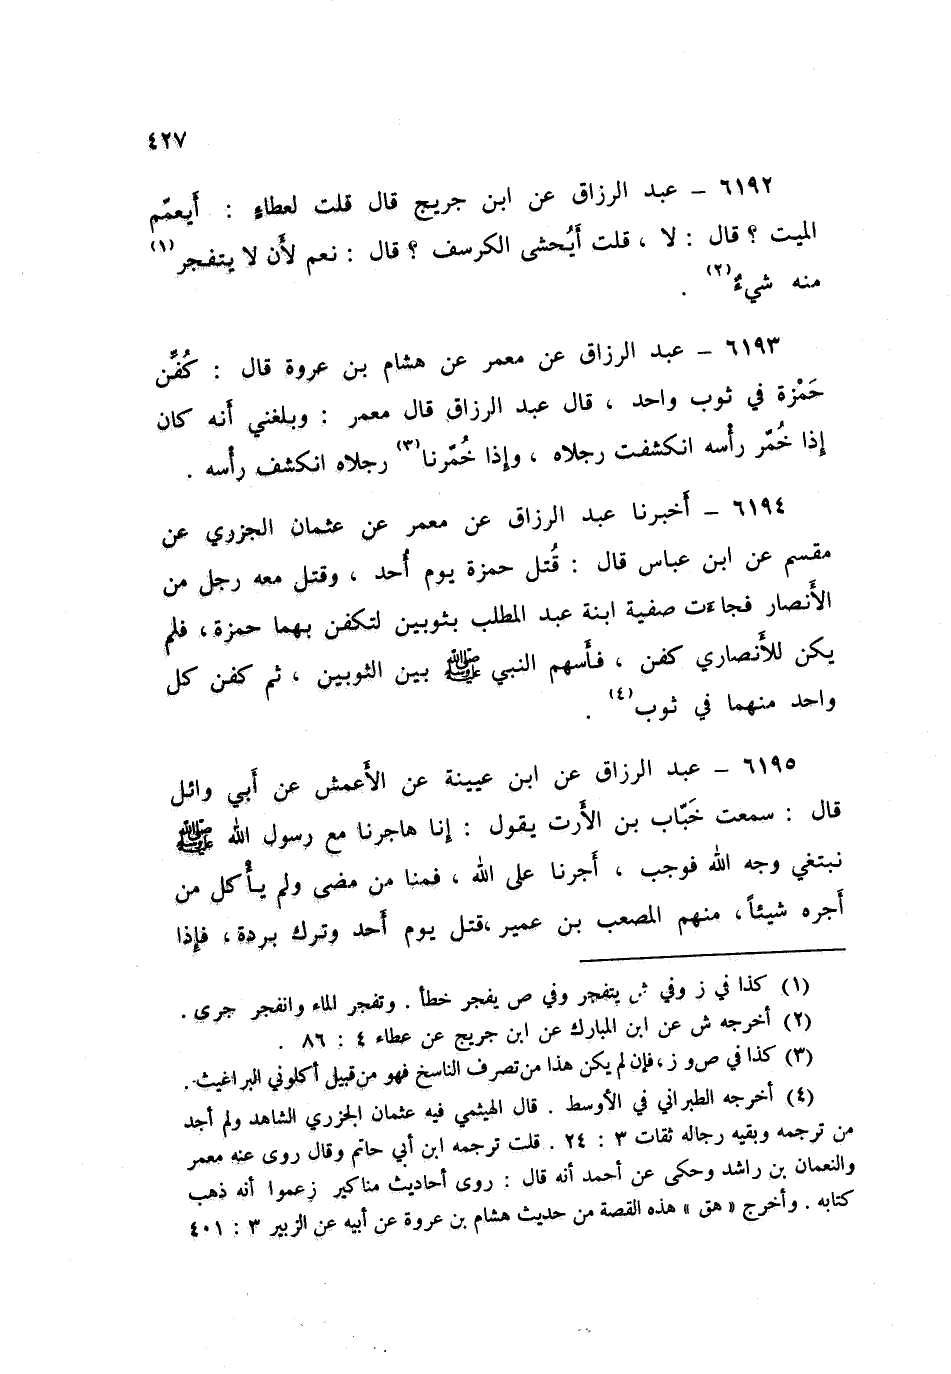 ٤٢٧
٦١٩٢ – عبد الرزاق عن ابن جريج قال قلت لعطاءٍ : أَيعمّم
الميت ؟ قال : لا ، قلت أَيُحشى الكرسف ؟ قال : نعم لأَن لا يتفجر(١)
منه شيءٌ(٢) .
٦١٩٣ – عبد الرزاق عن معمر عن هشام بن عروة قال : كُفِّن
حَمْزة في ثوب واحد ، قال عبد الرزاق قال معمر : وبلغني أَنه كان
إِذا خُمّر رأْسه انكشفت رجلاه ، وإِذا خُمّرنا(٣) رجلاه انكشف رأْسه .
٦١٩٤ – أَخبرنا عبد الرزاق عن معمر عن عثمان الجزري عن
مقسم عن ابن عباس قال : قُتل حمزة يوم أُحد ، وقتل معه رجل من
الأَنصار فجاءَت صفية ابنة عبد المطلب بثوبين لتكفن بهما حمزة، فلم
يكن للأَنصاري كفن ، فأَسهم النبي ﷺ بين الثوبين ، ثم كفن كل
واحد منهما في ثوب(٤) .
٦١٩٥ – عبد الرزاق عن ابن عيينة عن الأَعمش عن أَبي وائل
قال : سمعت خَبّاب بن الأَرت يقول : إِنا هاجرنا مع رسول الله ﷺ
نبتغي وجه الله فوجب ، أَجرنا على الله ، فمنا من مضى ولم يأْكل من
أَجره شيئاً، منهم المصعب بن عمير،قتل يوم أَحد وترك بردة، فإِذا
(١) كذا في ز وفي ش يتفجر وفي ص يفجر خطأ . وتفجر الماء وانفجر جرى .
(٢) أخرجه ش عن ابن المبارك عن ابن جريج عن عطاء ٤ : ٨٦ .
(٣) كذا في ص و ز،فإن لم يكن هذا من تصرف الناسخ فهو من قبيل أكلوني البراغيث.
(٤) أخرجه الطبراني في الأوسط . قال الهيثمي فيه عثمان الجزري الشاهد ولم أجد
من ترجمه وبقيه رجاله ثقات ٣ : ٢٤ . قلت ترجمه ابن أبي حاتم وقال روى عنه معمر
والنعمان بن راشد وحكى عن أحمد أنه قال : روى أحاديث مناكير زعموا أنه ذهب
كتابه . وأخرج « هق » هذه القصة من حديث هشام بن عروة عن أبيه عن الزبير ٣ : ٤٠١